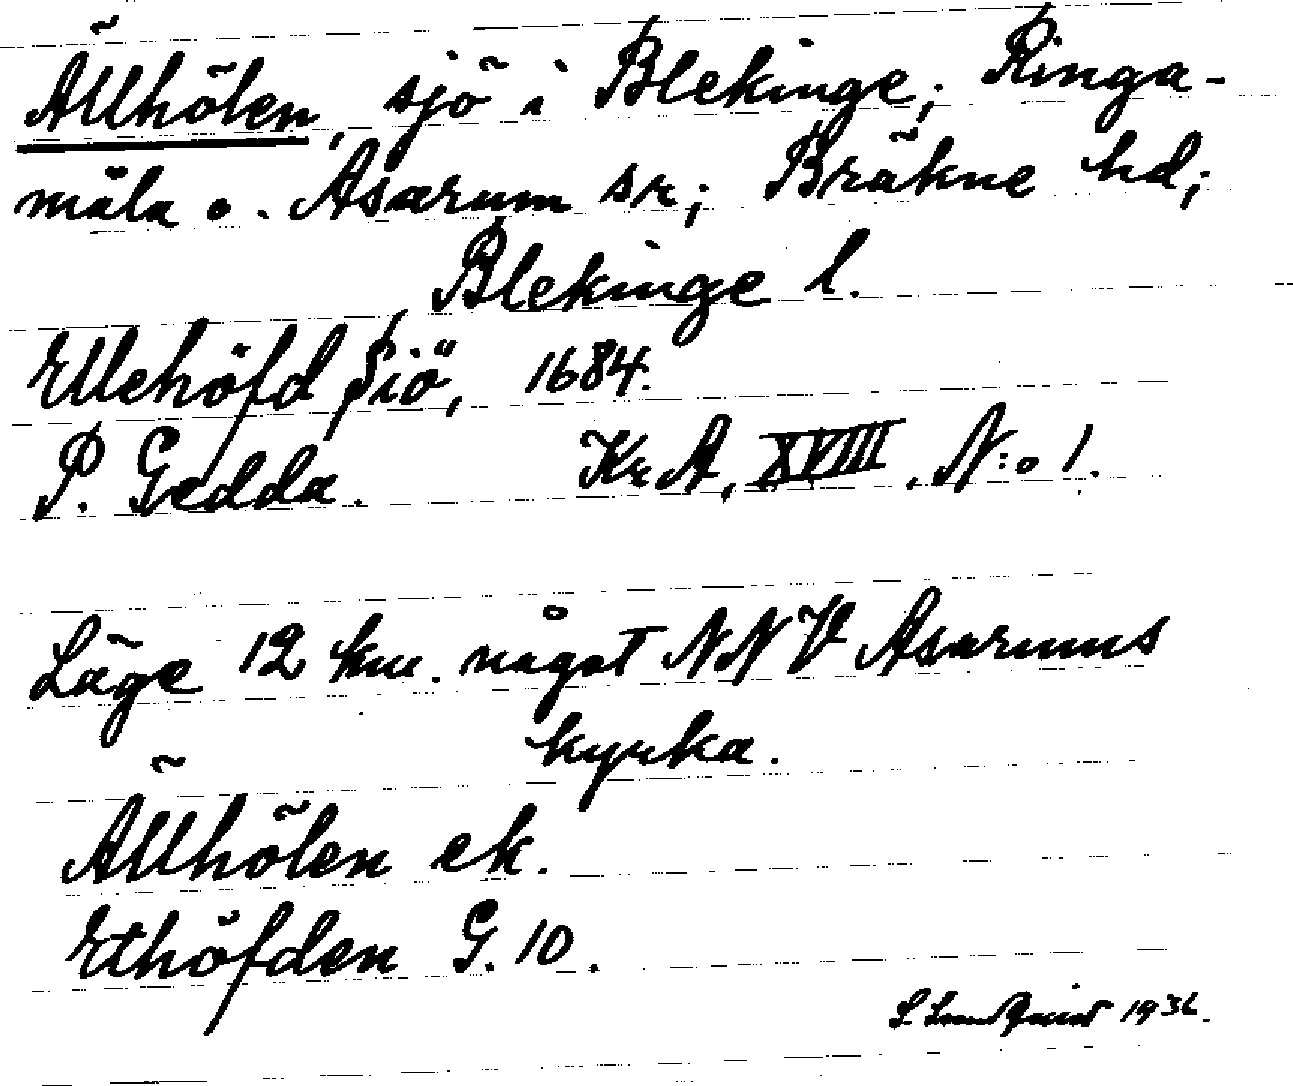 Ällhölen, sjö i Blekinge; Ringa-
måla o. Asarum sr; Bräkne hd;
Blekinge l.
Ellehöfd Siö, 1684.
P. Gedda. Kr A, XVIII, N:o 1.
Läge 12 km. något NNV Asarums
kyrka.
Ällhölen ek.
Ethöfden G. 10.
1936.